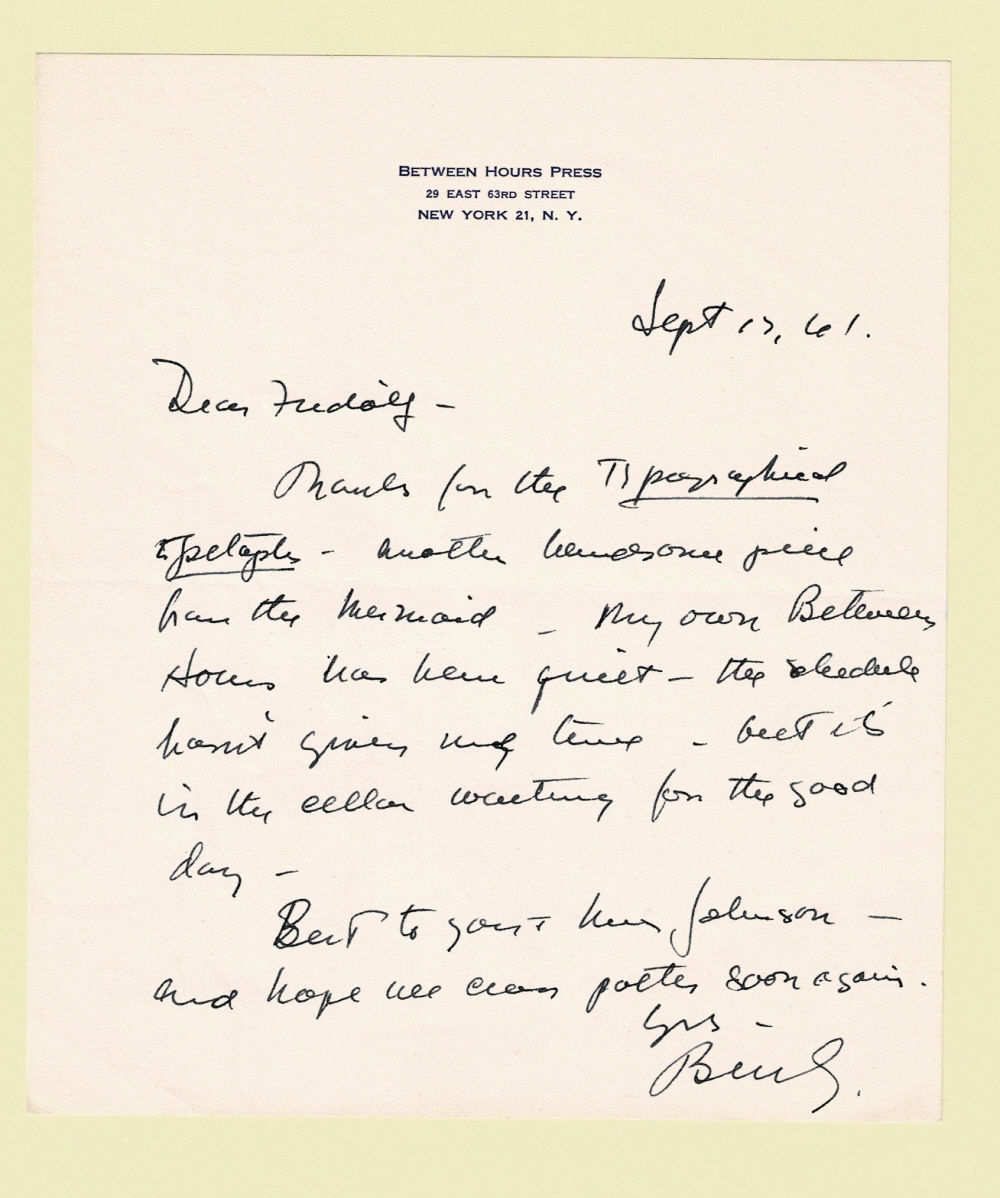 BETWEEN HOURS PRESS
29 EAST 63RD STREET
NEW YORK 21, N. Y.
Sept 13, 61.
Dear Fridolf –
Thanks for the Typographical
Epitaphs – another handsome piece
from the Mermaid – My own Between
Hours has been quiet – the schedule
hasn't given me time – but it's
in the cellar waiting for the good
day –
Best to you + Mrs Johnson –
and hope we cross paths soon again.
Yrs –
Ben